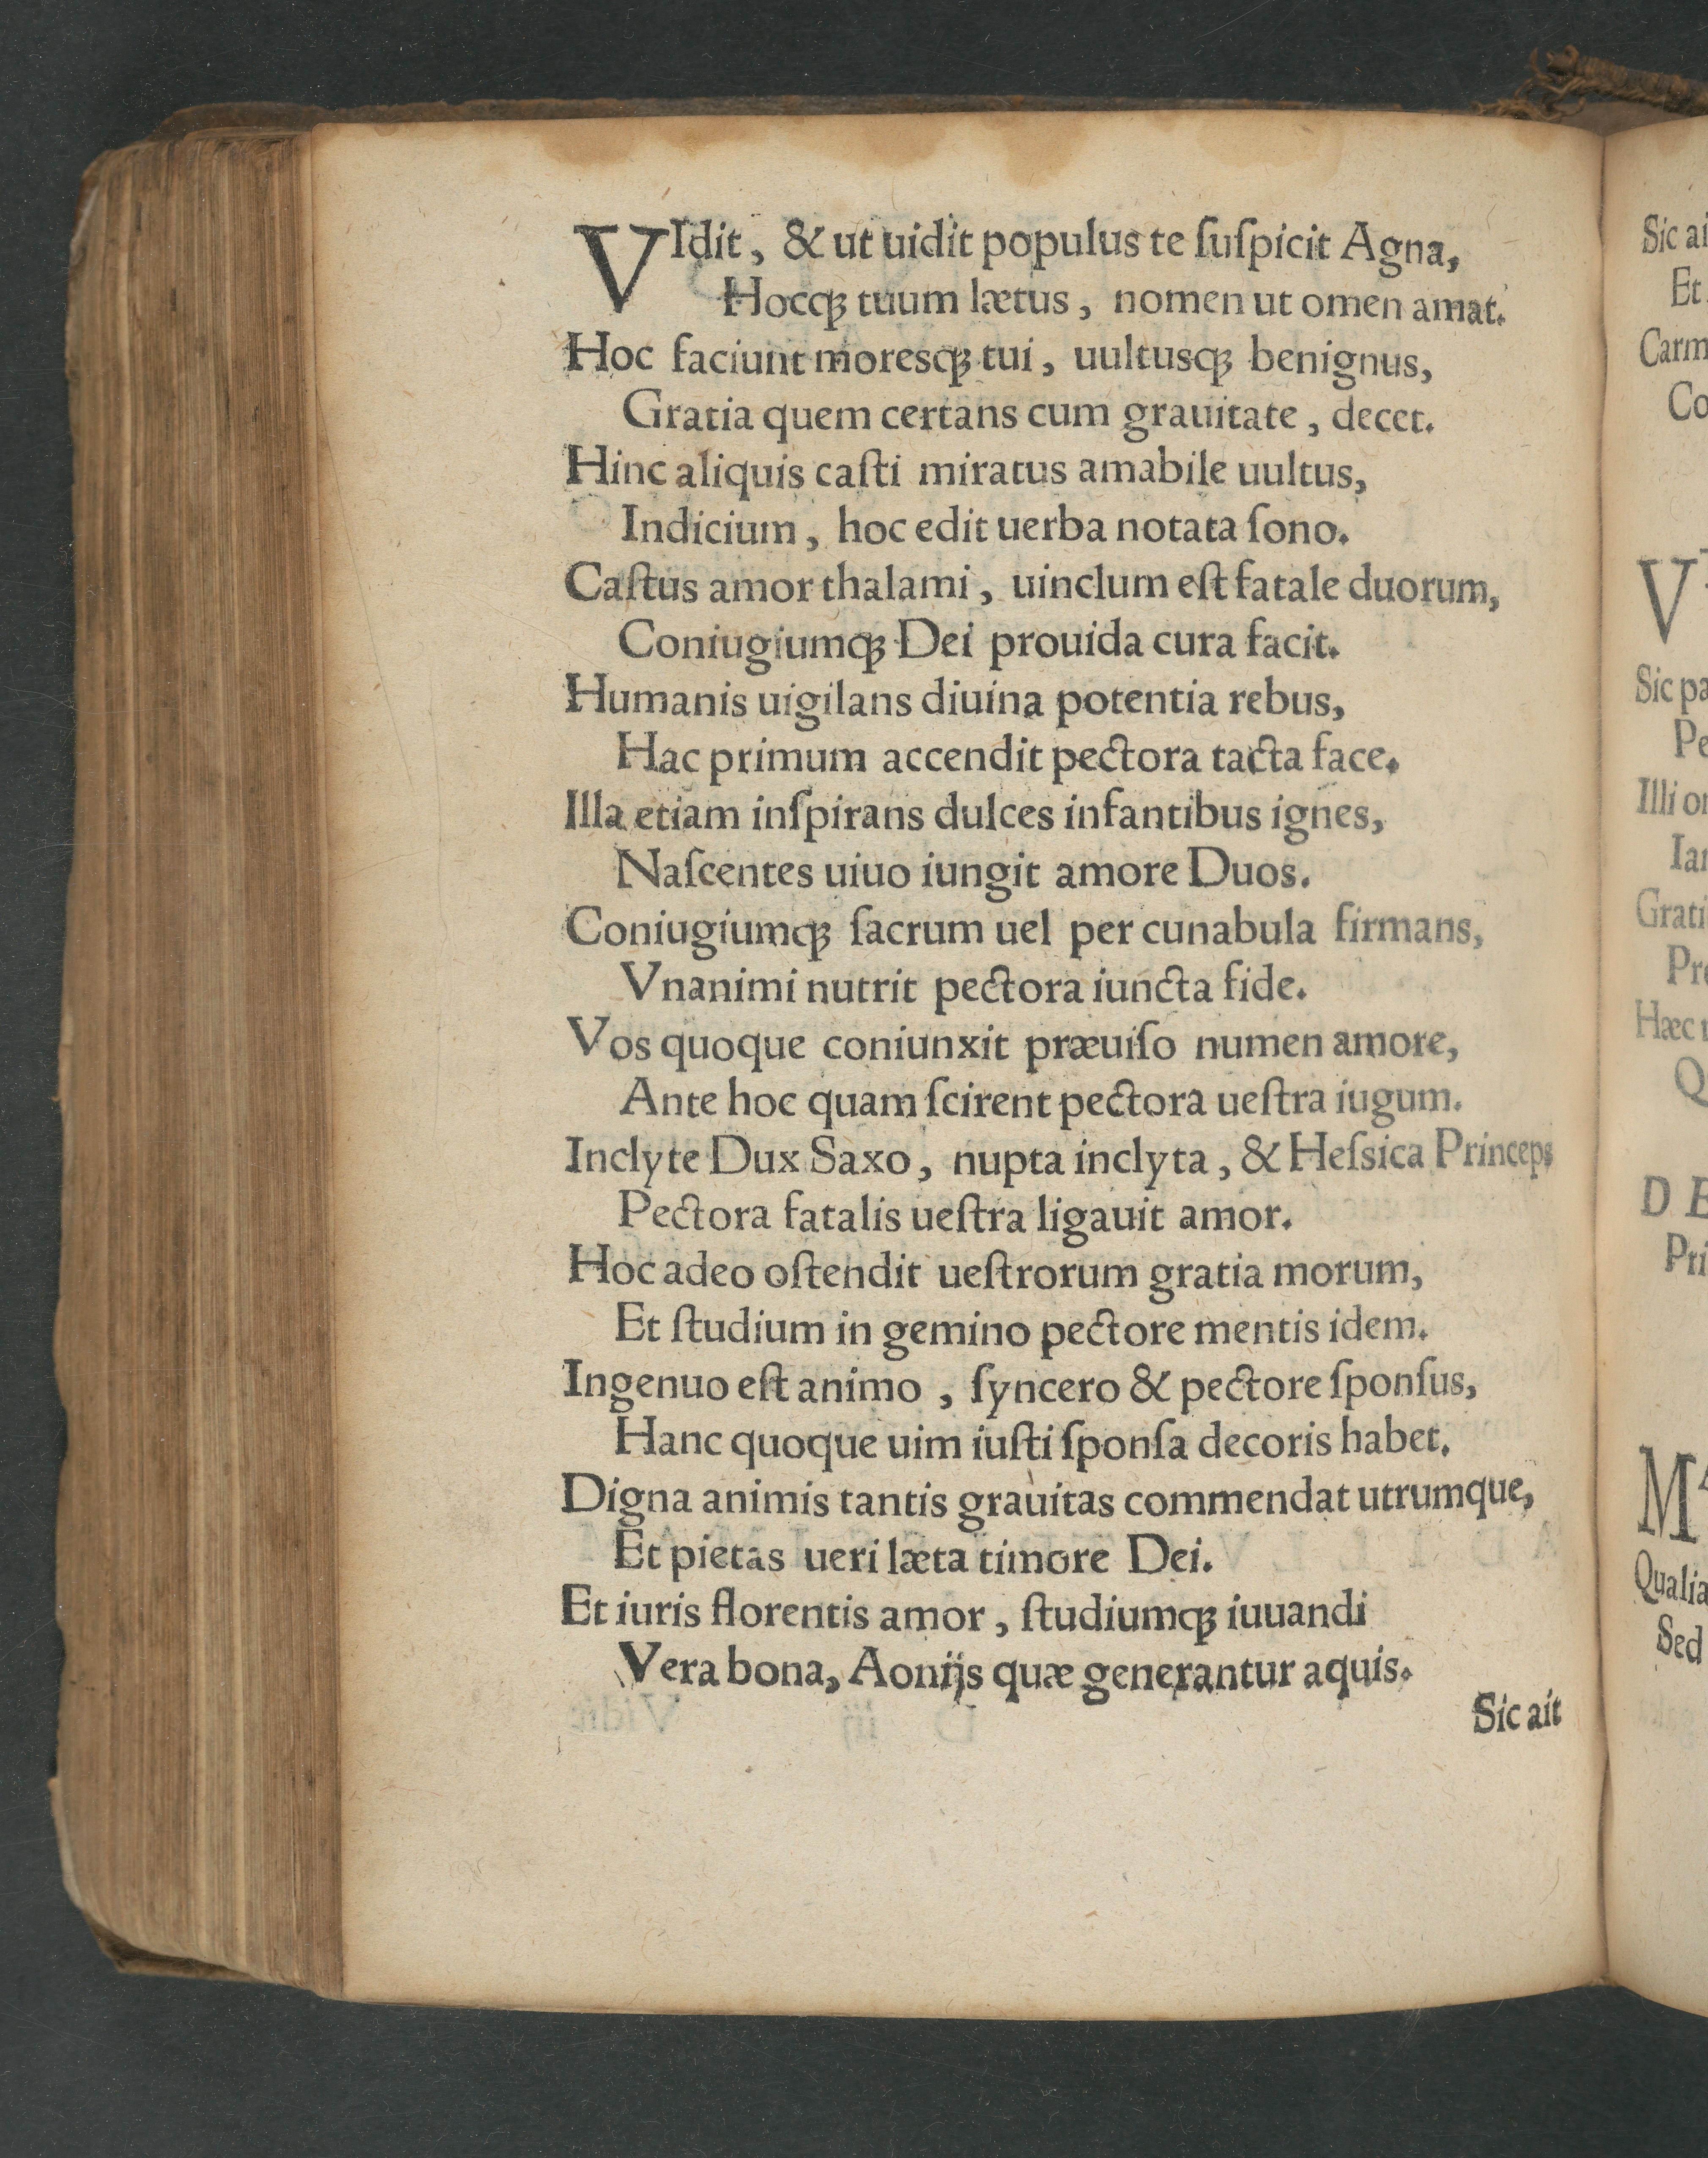 VIdit, & ut uidit populus te ſuſpicit Agna,
Hocq́ꝫ tuum lætus, nomen ut omen amat.
Hoc faciunt moresq́ꝫ tui, uultusq́ꝫ benignus,
Gratia quem certans cum grauitate, decet.
Hinc aliquis caſti miratus amabile uultus,
Indicium, hoc edit uerba notata ſono.
Caſtus amor thalami, uinclum eſt fatale duorum,
Coniugiumq́ꝫ Dei prouida cura facit.
Humanis uigilans diuina potentia rebus,
Hac primum accendit pectora tacta face.
Illa etiam inſpirans dulces infantibus ignes,
Naſcentes uiuo iungit amore Duos.
Coniugiumq́ꝫ ſacrum uel per cunabula firmans,
Vnanimi nutrit pectora iuncta fide.
Vos quoque coniunxit præuiſo numen amore,
Ante hoc quam ſcirent pectora ueſtra iugum.
Inclyte Dux Saxo, nupta inclyta, & Heſsica Princeps
Pectora fatalis ueſtra ligauit amor.
Hoc adeo oſtendit ueſtrorum gratia morum,
Et ſtudium in gemino pectore mentis idem.
Ingenuo eſt animo, ſyncero & pectore ſponſus,
Hanc quoque uim iuſti ſponſa decoris habet.
Digna animis tantis grauitas commendat utrumque,
Et pietas ueri læta timore Dei.
Et iuris florentis amor, ſtudiumq́ꝫ iuuandi
Vera bona, Aonijs quæ generantur aquis.
Sic ait
Sic
Et
V
Sic
Illi
D
Qualia
Sed